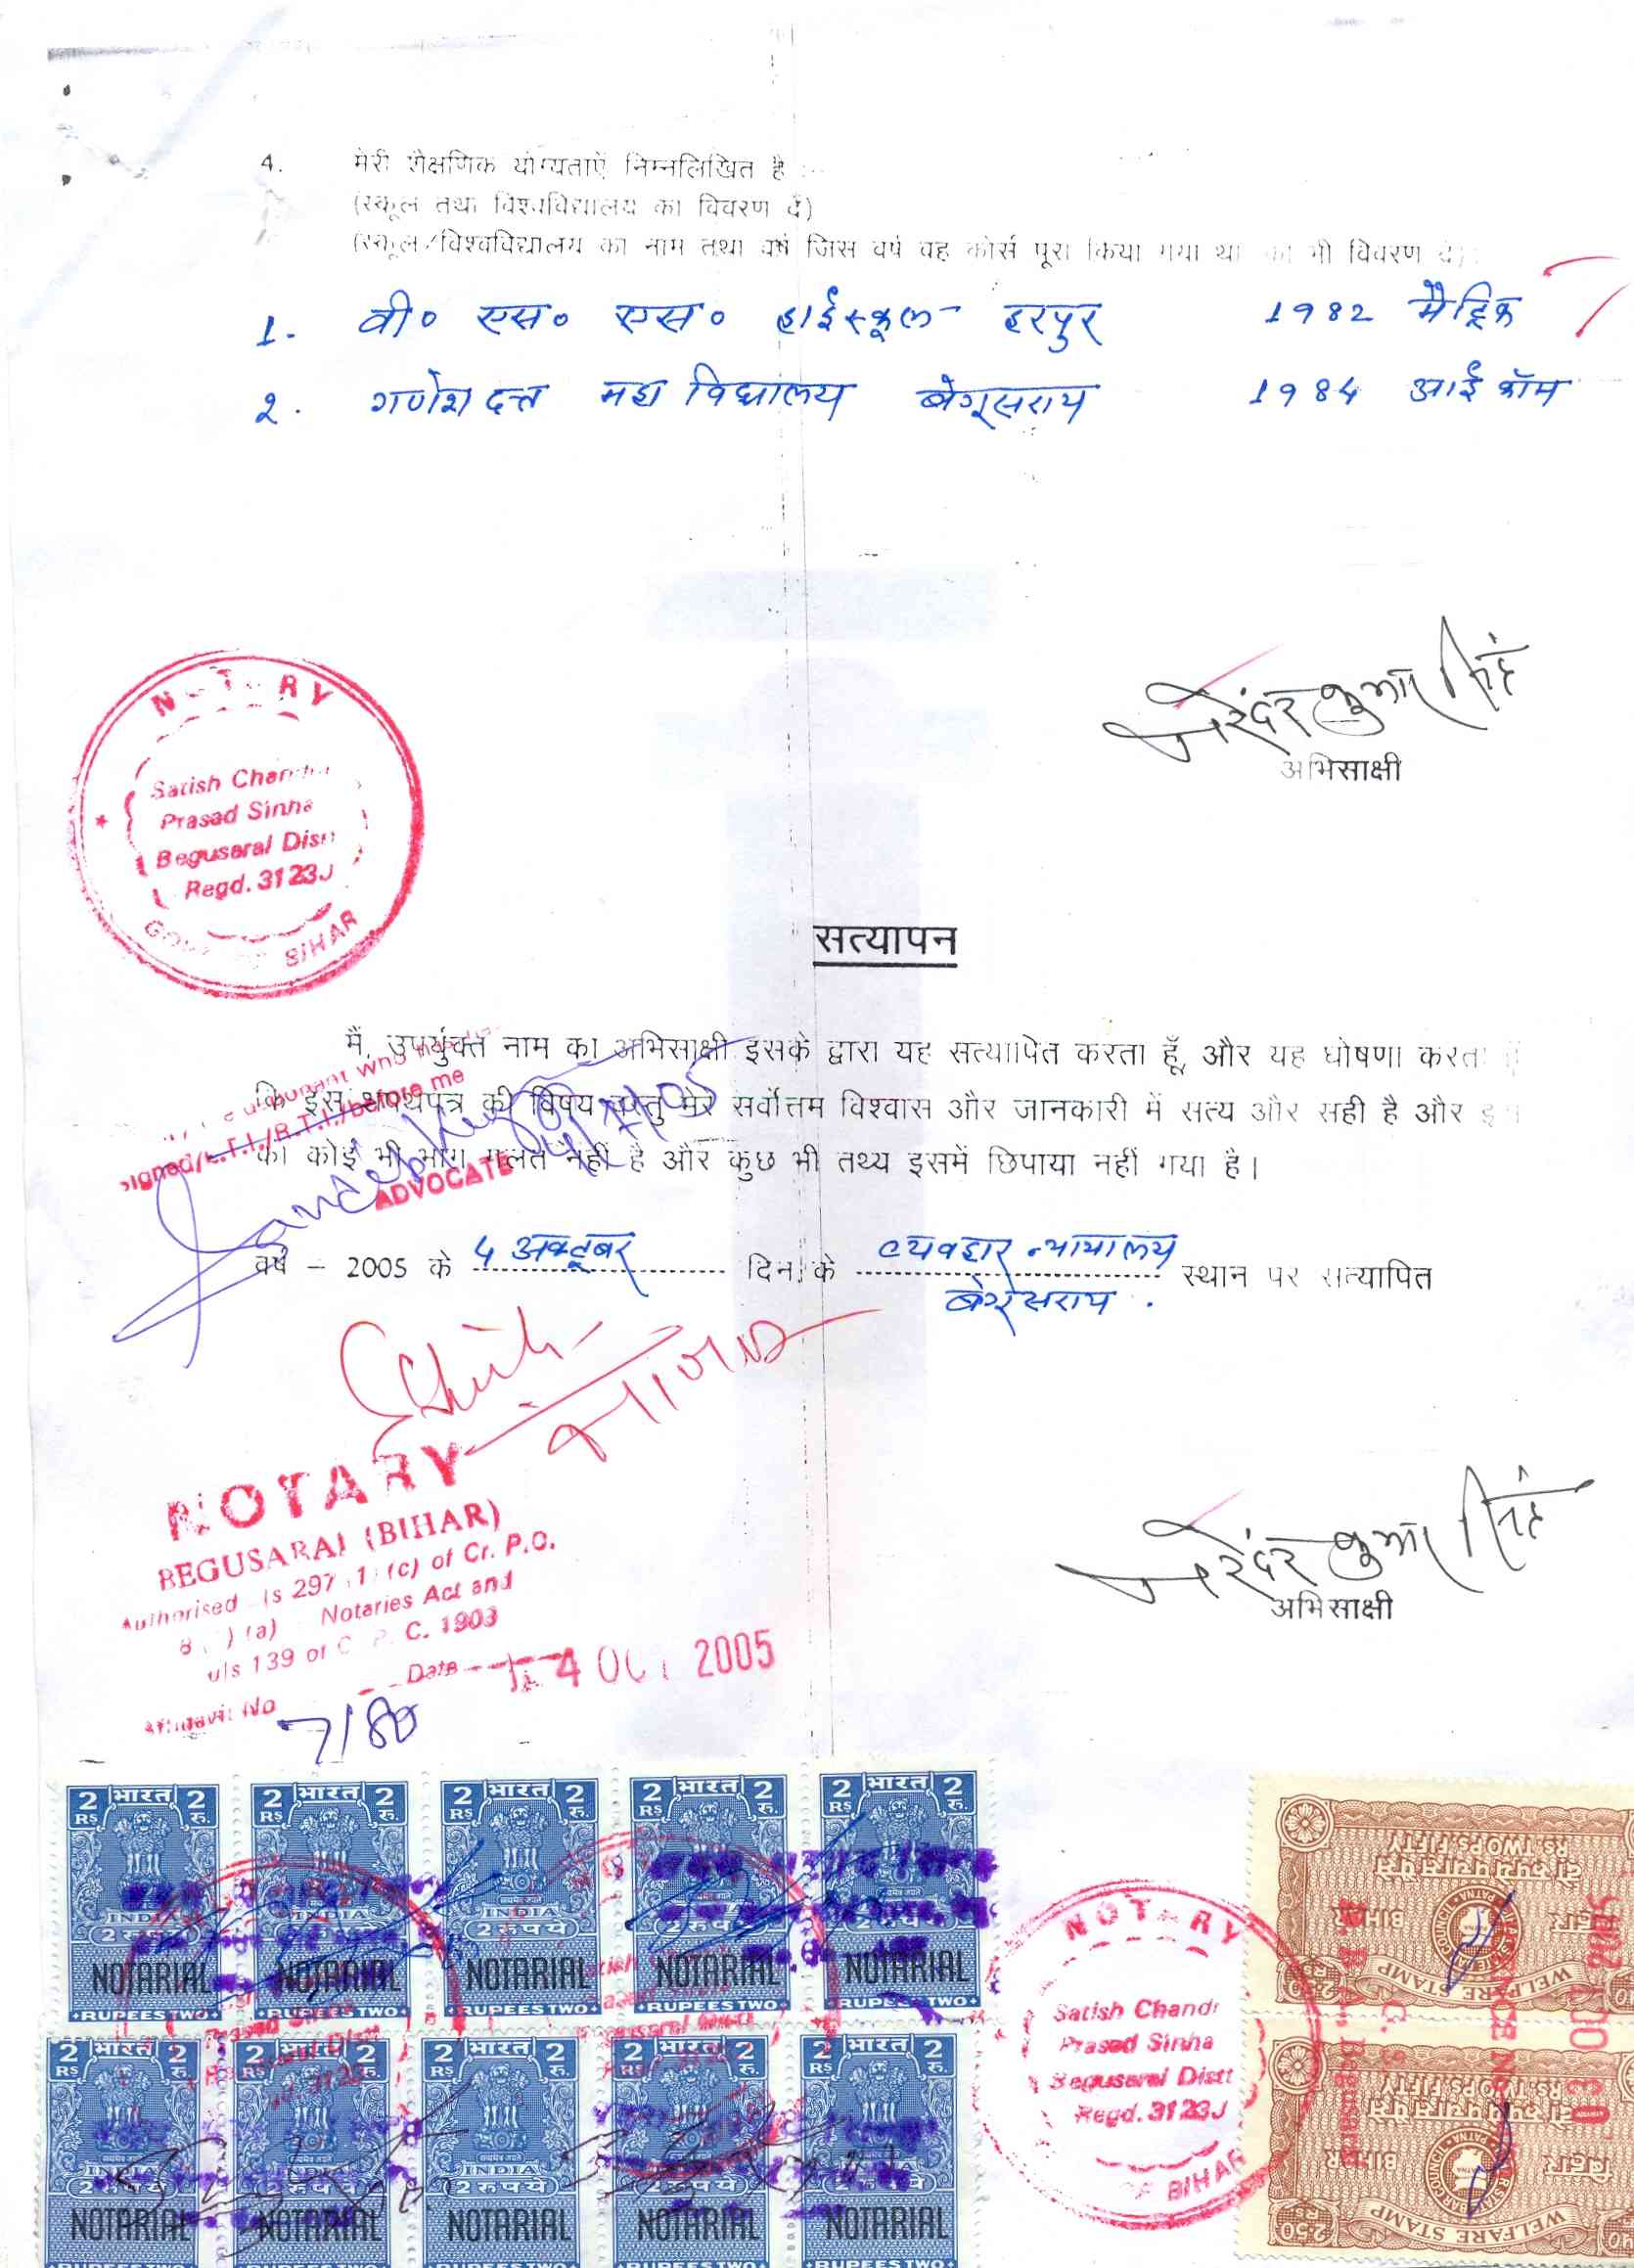 4. मेरी शैक्षणिक योग्यताएँ निम्नलिखित है :--
(स्कूल तथा विश्वविद्यालय का विवरण दें)
(स्कूल/विश्वविद्यालय का नाम तथा वर्ष जिस वर्ष वह कोर्स पूरा किया गया था का भी विवरण दें)
1. वी० एस० एस० हाईस्कूल - हरपुर 1982 मैट्रिक
2. गणेश दत्त महाविद्यालय बेगूसराय 1984 आई कॉम
नरेंदर कुमार सिंह
अभिसाक्षी
NOTARY
Satish Chandra
Prasad Sinha
Begusarai Distt
Regd. 3123J
GOVT OF BIHAR
सत्यापन
मैं, उपर्युक्त नाम का अभिसाक्षी इसके द्वारा यह सत्यापित करता हूँ, और यह घोषणा करता
कि इस शपथपत्र की विषय वस्तु मेरे सर्वोत्तम विश्वास और जानकारी में सत्य और सही है और इस
का कोई भी भाग गलत नहीं है और कुछ भी तथ्य इसमें छिपाया नहीं गया है।
who
signed/L.T.I./R.T.I./before me
ADVOCATE
वर्ष – 2005 के 4 अक्टूबर दिन के व्यवहार न्यायालय स्थान पर सत्यापित
बेगूसराय .
NOTARY
BEGUSARAI (BIHAR)
Authorised u/s 297 (1) (c) of Cr. P.C.
8 (1) (a) Notaries Act and
u/s 139 of C. P. C. 1908
Date 4 OCT 2005
Affidavit No 7180
नरेंदर कुमार सिंह
अभिसाक्षी
2 भारत 2 2 भारत 2 2 भारत 2 2 भारत 2 2 भारत 2
RS रु. RS रु. RS रु. RS रु. RS रु.
INDIA INDIA INDIA INDIA INDIA
2 रुपये 2 रुपये 2 रुपये 2 रुपये 2 रुपये
NOTARIAL NOTARIAL NOTARIAL NOTARIAL NOTARIAL
RUPEES TWO RUPEES TWO RUPEES TWO RUPEES TWO RUPEES TWO
2 भारत 2 2 भारत 2 2 भारत 2 2 भारत 2 2 भारत 2
RS रु. RS रु. RS रु. RS रु. RS रु.
INDIA INDIA INDIA INDIA INDIA
2 रुपये 2 रुपये 2 रुपये 2 रुपये 2 रुपये
NOTARIAL NOTARIAL NOTARIAL NOTARIAL NOTARIAL
RUPEES TWO RUPEES TWO RUPEES TWO RUPEES TWO RUPEES TWO
NOTARY
Satish Chandr
Prasad Sinha
Begusarai Distt
Regd. 3123J
OF BIHAR
RS. TWO PS. FIFTY
दो रुपये पचास पैसे
बिहार BIHAR
WELFARE STAMP
2.50
03 OCT 2005
RS. TWO PS. FIFTY
दो रुपये पचास पैसे
बिहार BIHAR
WELFARE STAMP
2.50